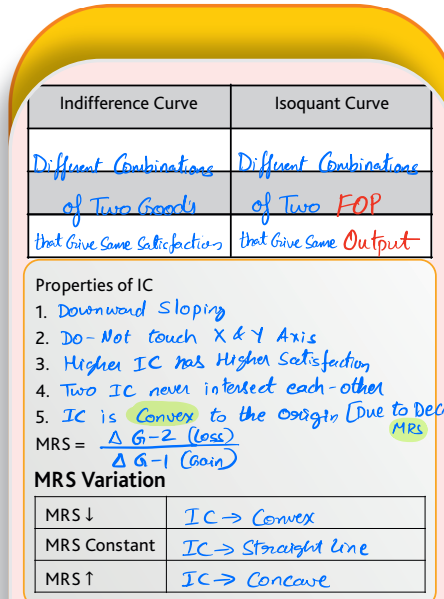 Indifference Curve | Isoquant Curve
Different Combinations | Different Combinations
of Two Goods | of Two FOP
that Give Same Satisfaction | that Give Same Output
Properties of IC
1. Downward Sloping
2. Do-Not touch X & Y Axis
3. Higher IC has Higher Satisfaction
4. Two IC never intersect each-other
5. IC is Convex to the origin [Due to Dec
MRS
MRS = Δ G-2 (Loss)
Δ G-1 (Gain)
MRS Variation
MRS ↓ | IC → Convex
MRS Constant | IC → Straight Line
MRS ↑ | IC → Concave